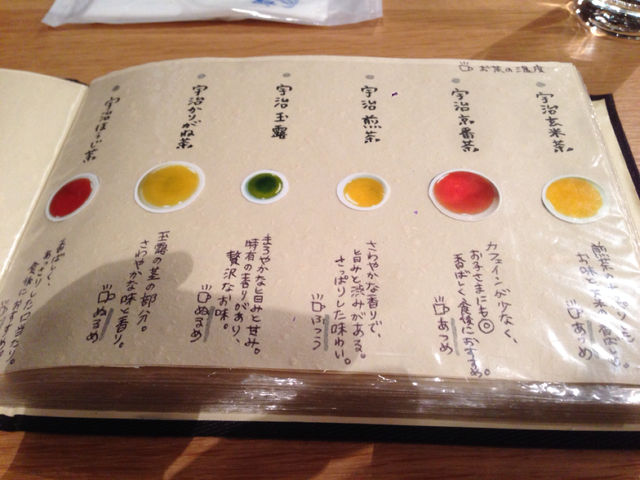 お茶の温度
宇治玄米茶
お味と
あつめ
宇治京番茶
カフェインが少なく、
お子さまにも◎
香ばしく食後におすすめ。
あつめ
宇治煎茶
さわやかな香りで、
旨みと渋みがある。
さっぱりした味わい。
ふつう
宇治玉露
まろやかな旨みと甘み。
特有の香りがあり、
贅沢なお味。
ぬるめ
宇治かりがね茶
玉露の茎の部分。
さわやかな味と香り。
ぬるめ
宇治ほうじ茶
香ばしく、
あっさりした口当たり。
食後におすすめ。